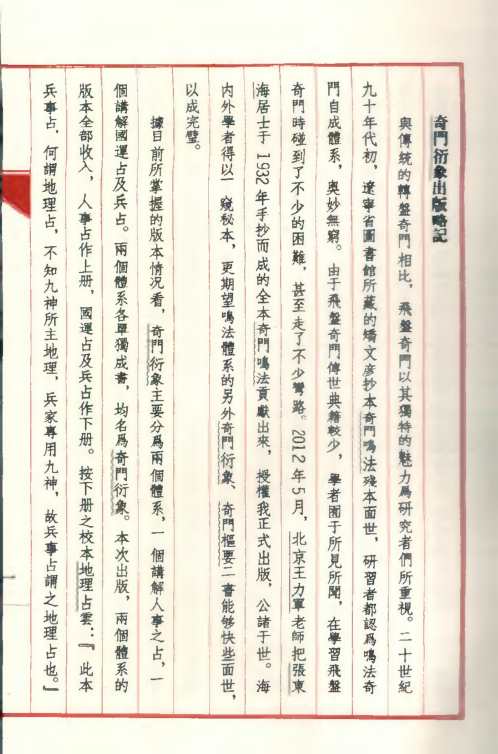 奇門衍象出版略記
與傳統的轉盤奇門相比，飛盤奇門以其獨特的魅力爲研究者們所重視。二十世紀
九十年代初，遼寧省圖書館所藏的矯文彦抄本奇門鳴法殘本面世，研習者都認爲鳴法奇
門自成體系，奥妙無窮。由于飛盤奇門傳世典籍較少，學者囿于所見所聞，在學習飛盤
奇門時碰到了不少的困難，甚至走了不少彎路。2012年5月，北京王力軍老師把張東
海居士于1932年手抄而成的全本奇門鳴法貢獻出來，授權我正式出版，公諸于世。海
内外學者得以一窺秘本，更期望鳴法體系的另外奇門衍象、奇門樞要二書能够快些面世，
以成完璧。
據目前所掌握的版本情况看，奇門衍象主要分爲兩個體系，一個講解人事之占，一
個講解國運占及兵占。兩個體系各單獨成書，均名爲奇門衍象。本次出版，兩個體系的
版本全部收入，人事占作上册，國運占及兵占作下册。按下册之校本地理占雲：『此本
兵事占，何謂地理占，不知九神所主地理，兵家專用九神，故兵事占謂之地理占也。』